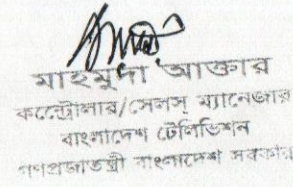 মাহমুদা আক্তার
কন্ট্রোলার/সেলস্ ম্যানেজার
বাংলাদেশ টেলিভিশন
গণপ্রজাতন্ত্রী বাংলাদেশ সরকার